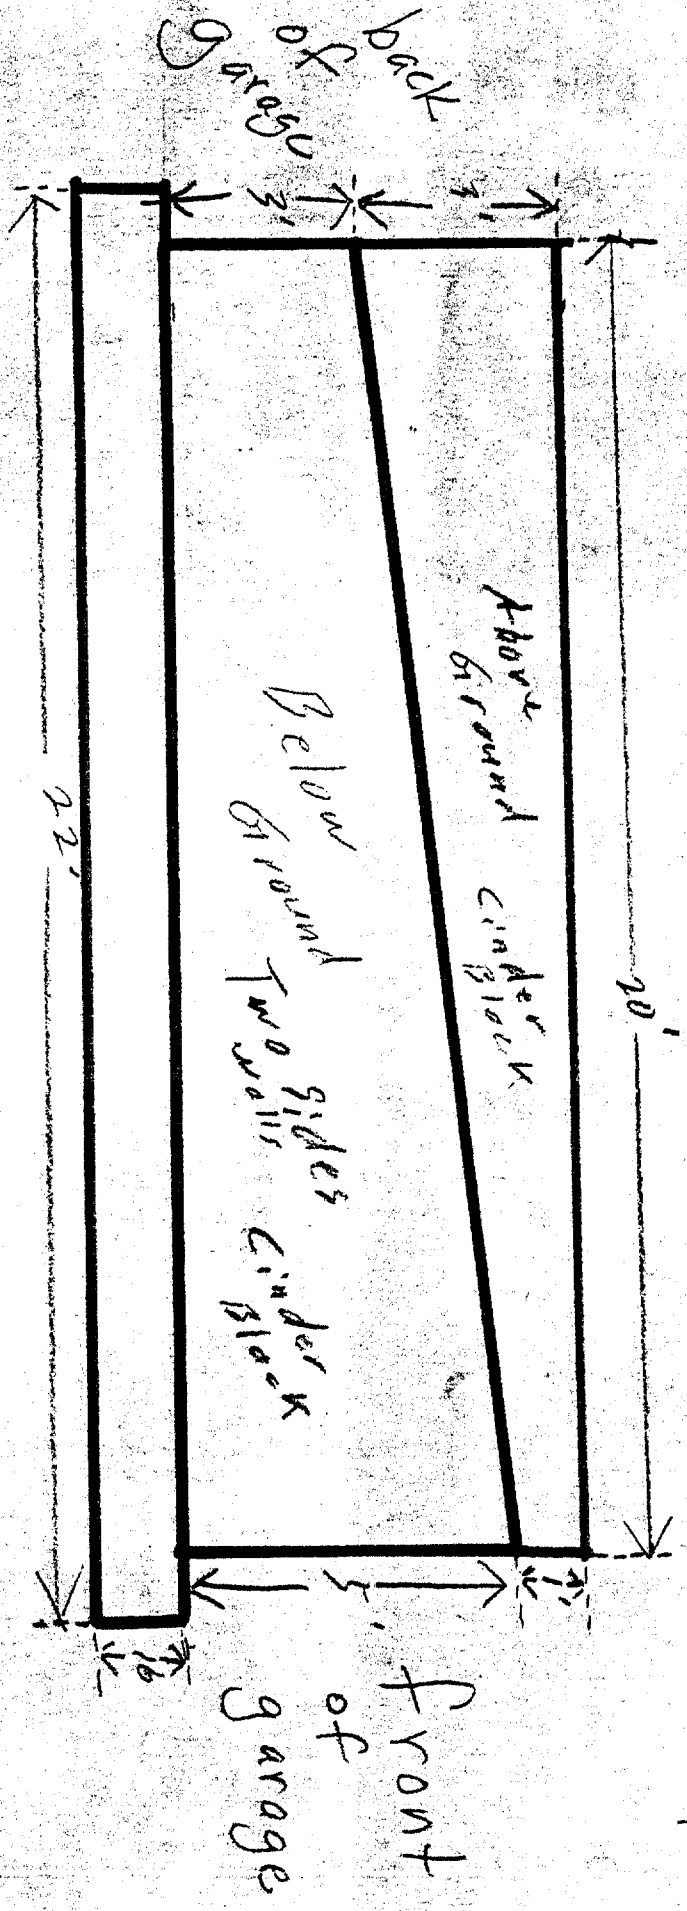 back
of
garage
3'
20'
Above
Ground
Cinder
Block
Below
Ground
Two Sides
walls
Cinder
Block
22'
5'
1'
front
of
garage